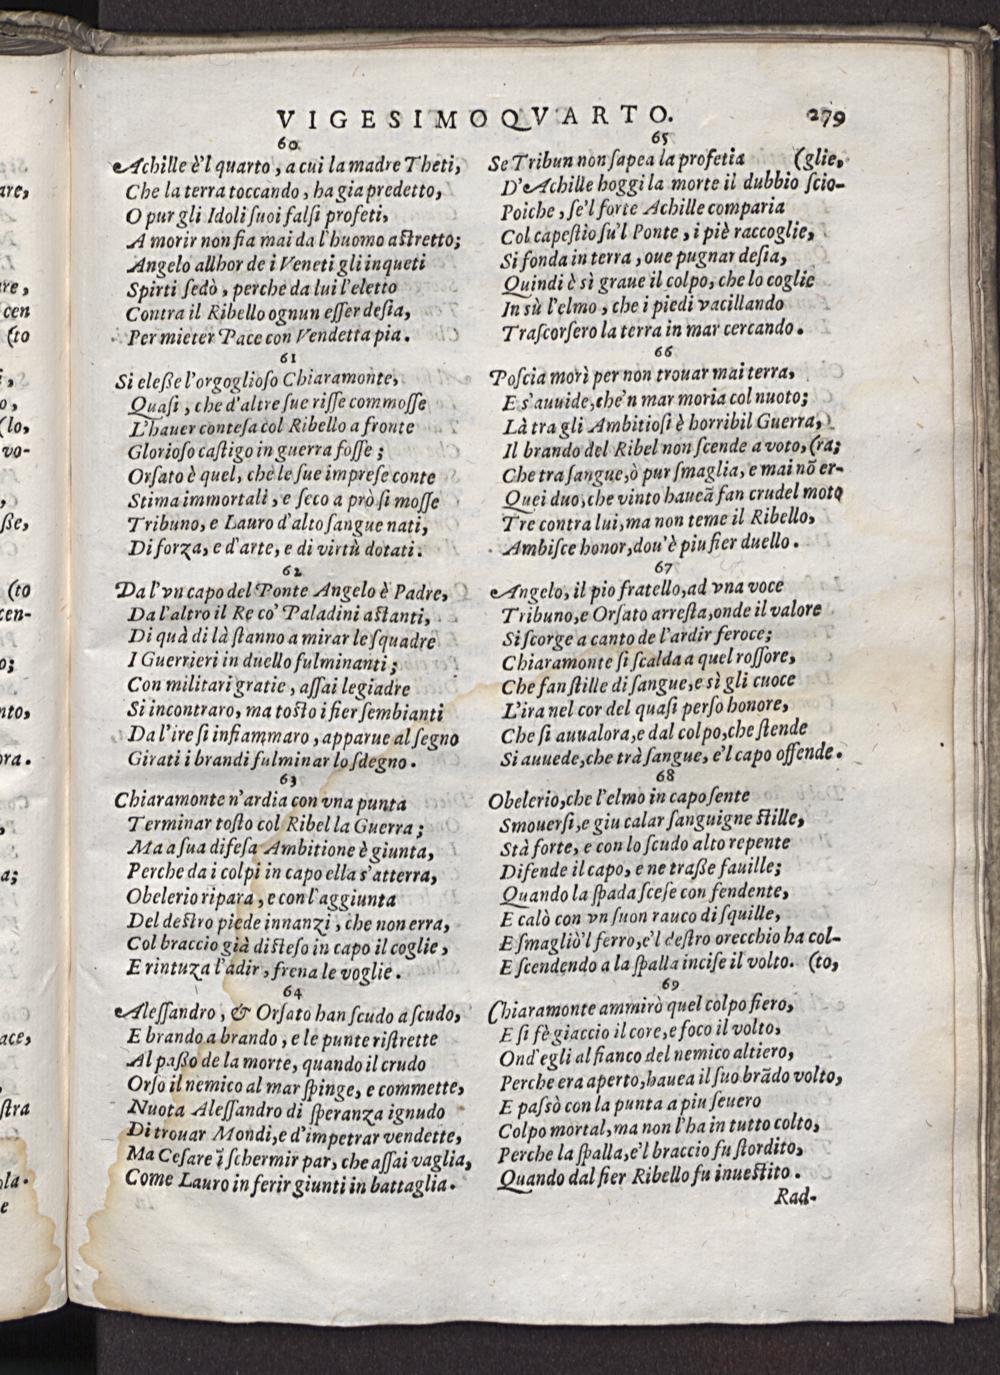 VIGESIMOQVARTO. 279
60
Achille è'l quarto, a cui la madre Theti,
Che la terra toccando, ha gia predetto,
O pur gli Idoli suoi falsi profeti,
A morir non fia mai da l'huomo astretto;
Angelo allhor de i Veneti gli inqueti
Spirti sedò, perche da lui l'eletto
Contra il Ribello ognun esser desia,
Per mieter Pace con Vendetta pia.
61
Si elesse l'orgoglioso Chiaramonte,
Quasi, che d'altre sue risse commosse
L'hauer contesa col Ribello a fronte
Glorioso castigo in guerra fosse;
Orsato è quel, che le sue imprese conte
Stima immortali, e seco a prò si mosse
Tribuno, e Lauro d'alto sangue nati,
Di forza, e d'arte, e di virtù dotati.
62
Da l'vn capo del Ponte Angelo è Padre,
Da l'altro il Re co' Paladini astanti,
Di quà di là stanno a mirar le squadre
I Guerrieri in duello fulminanti;
Con militari gratie, assai legiadre
Si incontraro, ma tosto i fier sembianti
Da l'ire si infiammaro, apparue al segno
Girati i brandi fulminar lo sdegno.
63
Chiaramonte n'ardia con vna punta
Terminar tosto col Ribel la Guerra;
Ma a sua difesa Ambitione è giunta,
Perche da i colpi in capo ella s'atterra,
Obelerio ripara, e con l'aggiunta
Del destro piede innanzi, che non erra,
Col braccio già disteso in capo il coglie,
E rintuza l'adir, frena le voglie.
64
Alessandro, & Orsato han scudo a scudo,
E brando a brando, e le punte ristrette
Al passo de la morte, quando il crudo
Orso il nemico al mar spinge, e commette,
Nuota Alessandro di speranza ignudo
Di trouar Mondi, e d'impetrar vendette,
Ma Cesare ĩ schermir par, che assai vaglia,
Come Lauro in ferir giunti in battaglia.
65
Se Tribun non sapea la profetia (glie,
D'Achille hoggi la morte il dubbio scio-
Poiche, se'l forte Achille comparia
Col capestio su'l Ponte, i piè raccoglie,
Si fonda in terra, oue pugnar desia,
Quindi è sì graue il colpo, che lo coglie
In sù l'elmo, che i piedi vacillando
Trascorsero la terra in mar cercando.
66
Poscia morì per non trouar mai terra,
E s'auuide, che'n mar moria col nuoto;
Là tra gli Ambitiosi è horribil Guerra,
Il brando del Ribel non scende a voto, (ra;
Che tra sangue, ò pur smaglia, e mai nõ er-
Quei duo, che vinto haueã fan crudel moto
Tre contra lui, ma non teme il Ribello,
Ambisce honor, dou'è piu fier duello.
67
Angelo, il pio fratello, ad vna voce
Tribuno, e Orsato arresta, onde il valore
Si scorge a canto de l'ardir feroce;
Chiaramonte si scalda a quel rossore,
Che fan stille di sangue, e sì gli cuoce
L'ira nel cor del quasi perso honore,
Che si auualora, e dal colpo, che stende
Si auuede, che trà sangue, e'l capo offende.
68
Obelerio, che l'elmo in capo sente
Smouersi, e giu calar sanguigne stille,
Stà forte, e con lo scudo alto repente
Difende il capo, e ne trasse fauille;
Quando la spada scese con fendente,
E calò con vn suon rauco di squille,
E smagliò'l ferro, e'l destro orecchio ha col-
E scendendo a la spalla incise il volto. (to,
69
Chiaramonte ammirò quel colpo fiero,
E si fè giaccio il core, e foco il volto,
Ond'egli al fianco del nemico altiero,
Perche era aperto, hauea il suo brãdo volto,
E passò con la punta a piu seuero
Colpo mortal, ma non l'ha in tutto colto,
Perche la spalla, e'l braccio fu stordito,
Quando dal fier Ribello fu inuestito.
Rad-